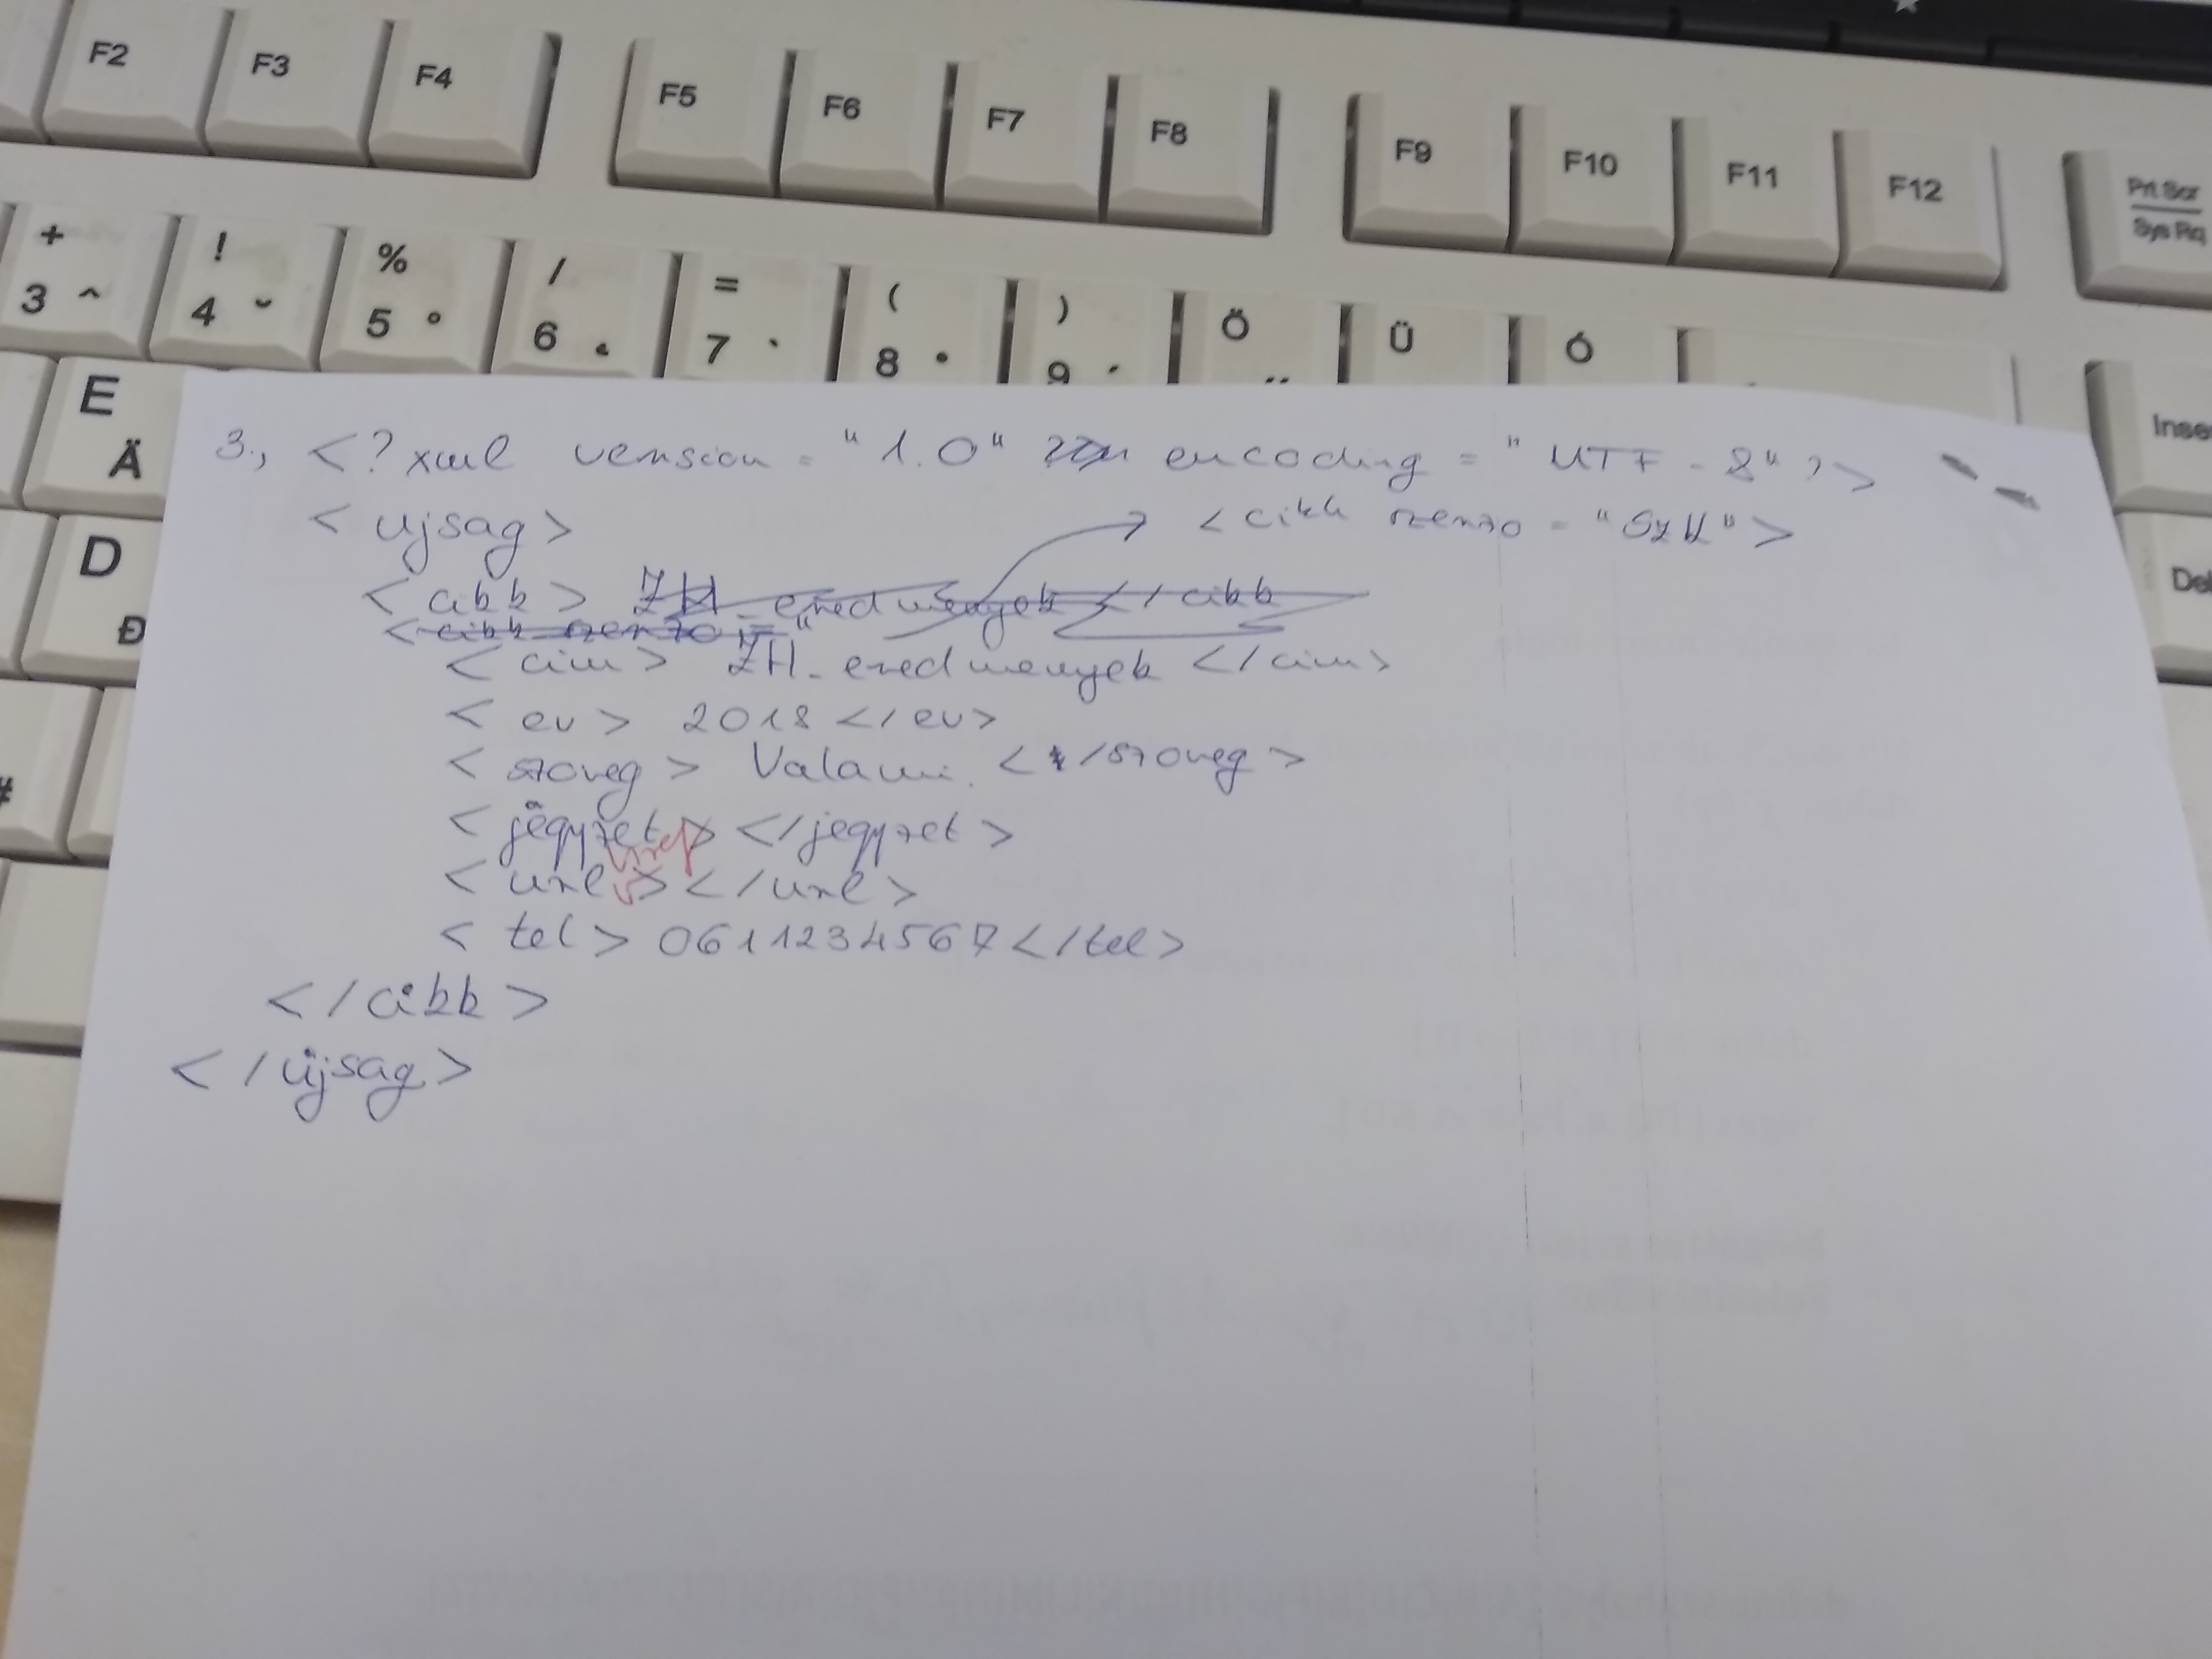 F2 F3 F4 F5 F6 F7 F8 F9 F10 F11 F12 Prt Scr
Sys Rq
+ ! % / = ( ) Ö Ü Ó
3 ^ 4 ˘ 5 ° 6 ˛ 7 ` 8 ˙ 9 ´ ¨
E Ä Inse
D Đ Del
#
3., <?xml version = "1.0" encoding = "UTF-8" ?>
<ujsag> <cikk szerzo = "SzK">
<cikk> ZH-eredmenyek </cikk
<cikk szerzo = "
<cim> ZH-eredmenyek </cim>
<ev> 2018 </ev>
<szoveg> Valami. </szoveg>
<jegyzet> </jegyzet>
href
<url></url>
<tel> 0611234567</tel>
</cikk>
</ujsag>